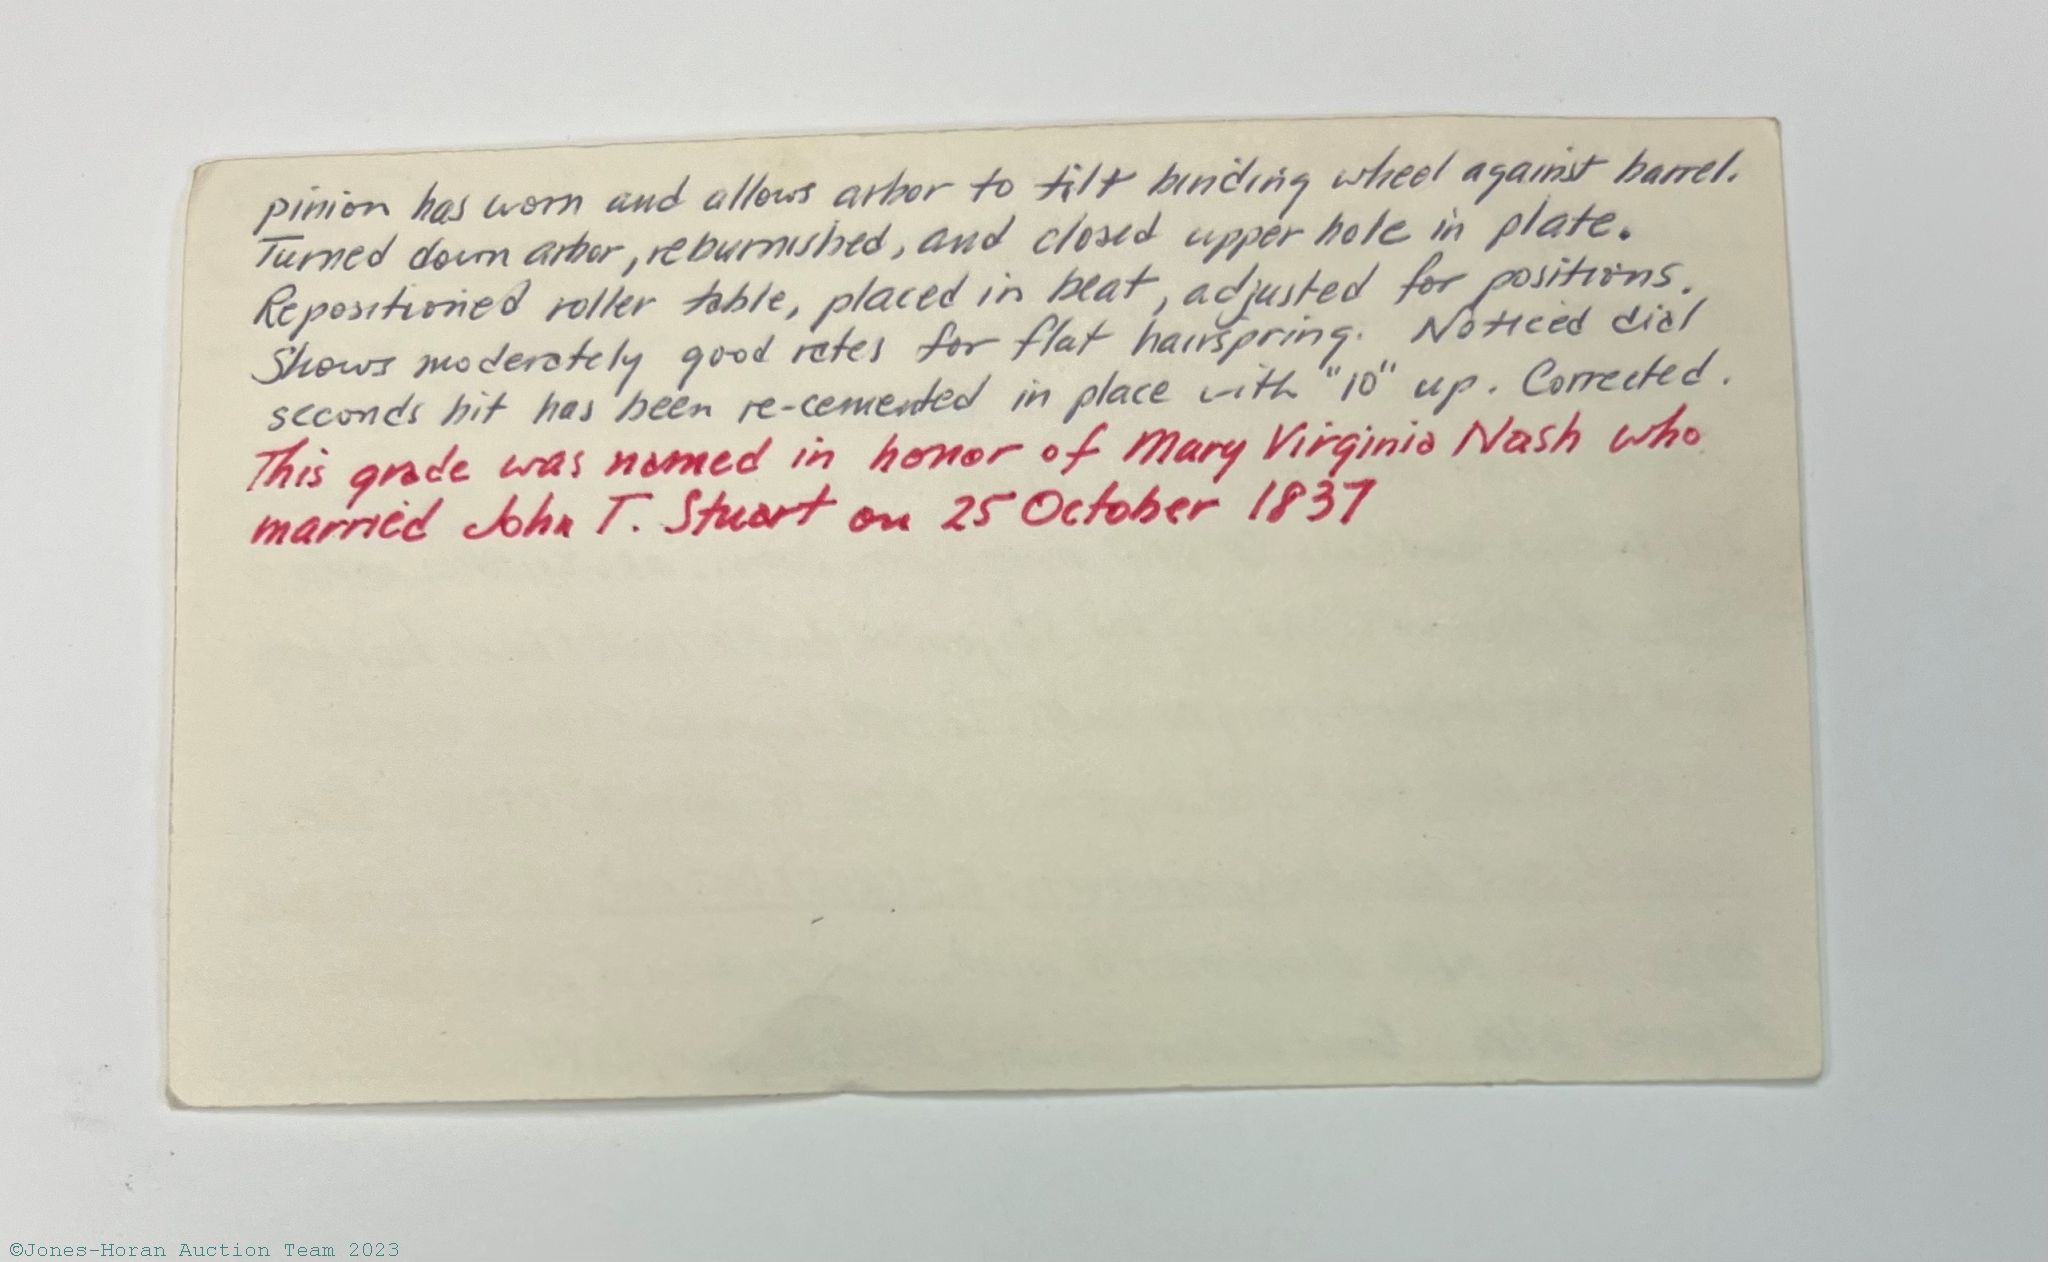 pinion has worn and allows arbor to tilt binding wheel against barrel.
Turned down arbor, reburnished, and closed upper hole in plate.
Repositioned roller table, placed in beat, adjusted for positions.
Shows moderately good rates for flat hairspring. Noticed dial
seconds bit has been re-cemented in place with "10" up. Corrected.
This grade was named in honor of Mary Virginia Nash who
married John T. Stuart on 25 October 1837
©Jones-Horan Auction Team 2023